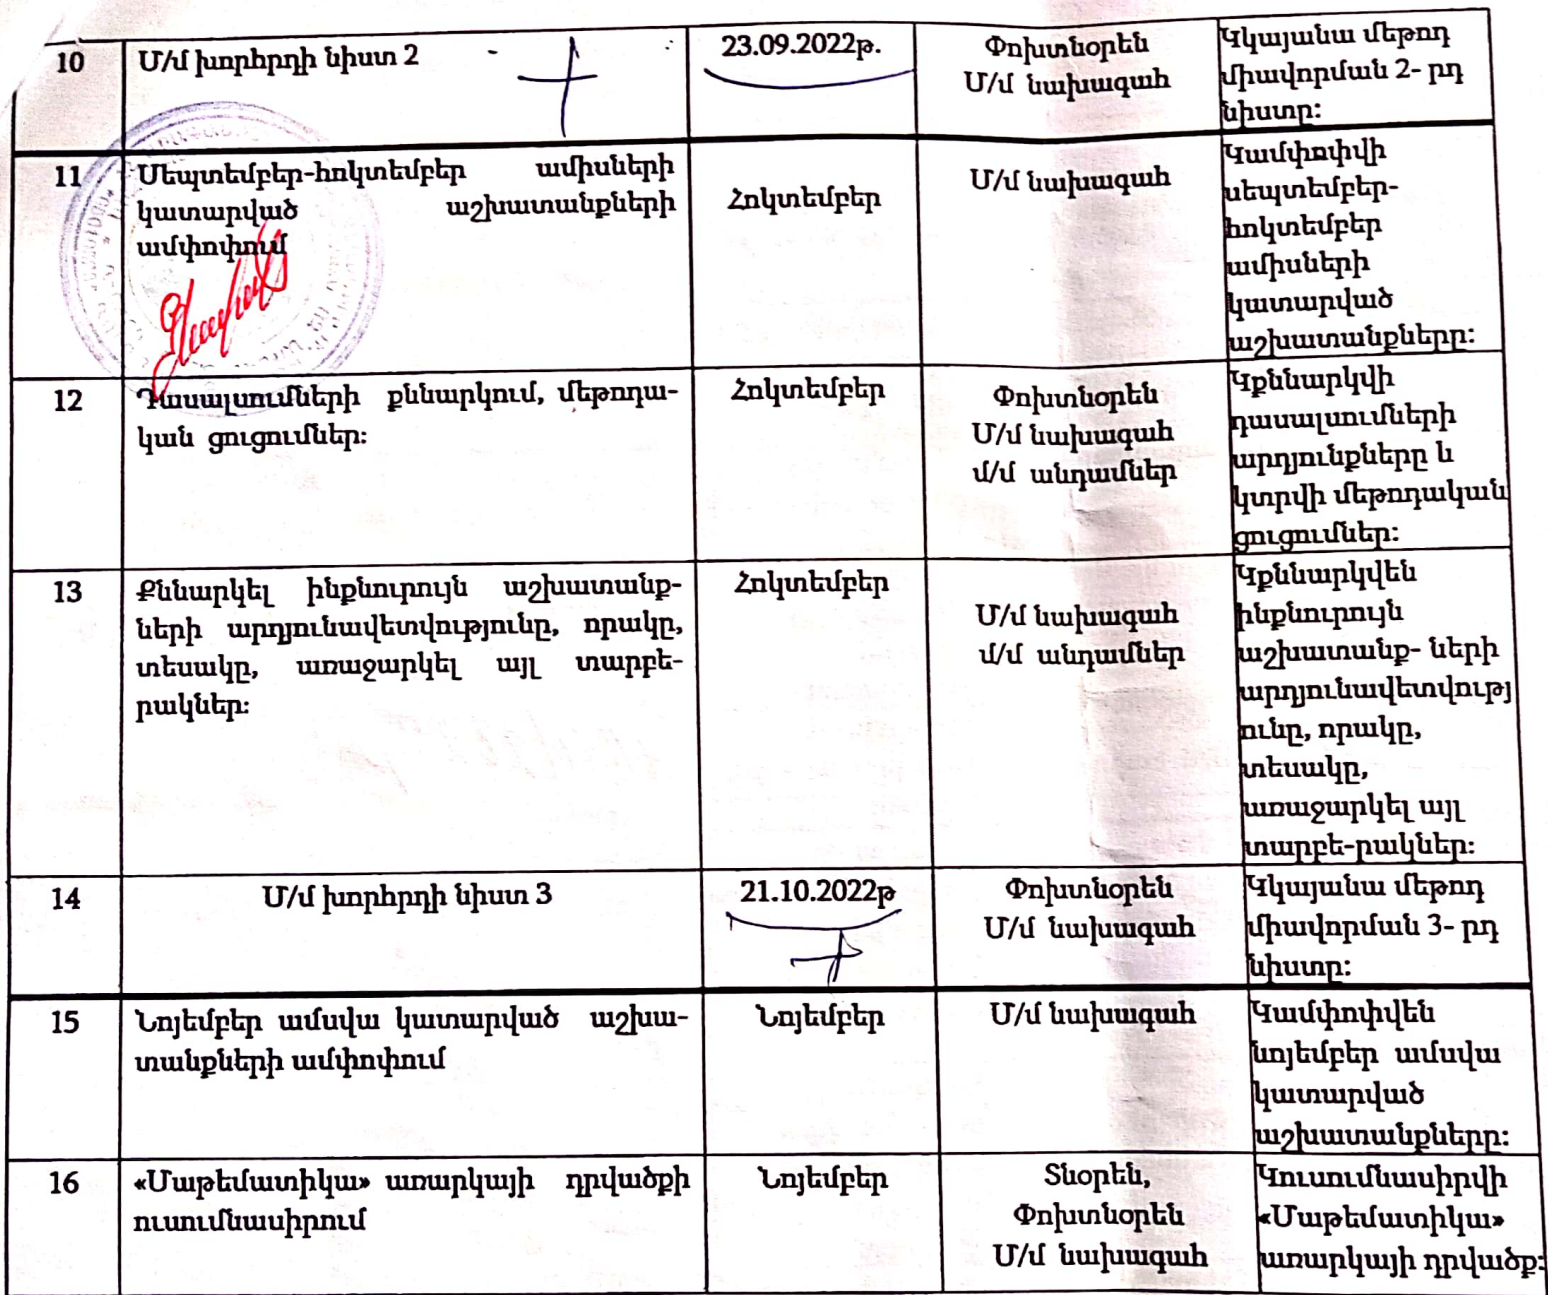 10
Մ/մ խորհրդի նիստ 2
23.09.2022թ.
Փոխտնօրեն
Մ/մ նախագահ
Կկայանա մեթոդ
միավորման 2- րդ
նիստը:
11
Սեպտեմբեր-հոկտեմբեր ամիսների
կատարված աշխատանքների
ամփոփում
Հոկտեմբեր
Մ/մ նախագահ
Կամփոփվի
սեպտեմբեր-
հոկտեմբեր
ամիսների
կատարված
աշխատանքները:
12
Դասալսումների քննարկում, մեթոդա-
կան ցուցումներ:
Հոկտեմբեր
Փոխտնօրեն
Մ/մ նախագահ
մ/մ անդամներ
Կքննարկվի
դասալսումների
արդյունքները և
կտրվի մեթոդական
ցուցումներ:
13
Քննարկել ինքնուրույն աշխատանք-
ների արդյունավետվությունը, որակը,
տեսակը, առաջարկել այլ տարբե-
րակներ:
Հոկտեմբեր
Մ/մ նախագահ
մ/մ անդամներ
Կքննարկվեն
ինքնուրույն
աշխատանք- ների
արդյունավետվությ
ունը, որակը,
տեսակը,
առաջարկել այլ
տարբե-րակներ:
14
Մ/մ խորհրդի նիստ 3
21.10.2022թ
Փոխտնօրեն
Մ/մ նախագահ
Կկայանա մեթոդ
միավորման 3- րդ
նիստը:
15
Նոյեմբեր ամսվա կատարված աշխա-
տանքների ամփոփում
Նոյեմբեր
Մ/մ նախագահ
Կամփոփվեն
նոյեմբեր ամսվա
կատարված
աշխատանքները:
16
«Մաթեմատիկա» առարկայի դրվածքի
ուսումնասիրում
Նոյեմբեր
Տնօրեն,
Փոխտնօրեն
Մ/մ նախագահ
Կուսումնասիրվի
«Մաթեմատիկա»
առարկայի դրվածք: